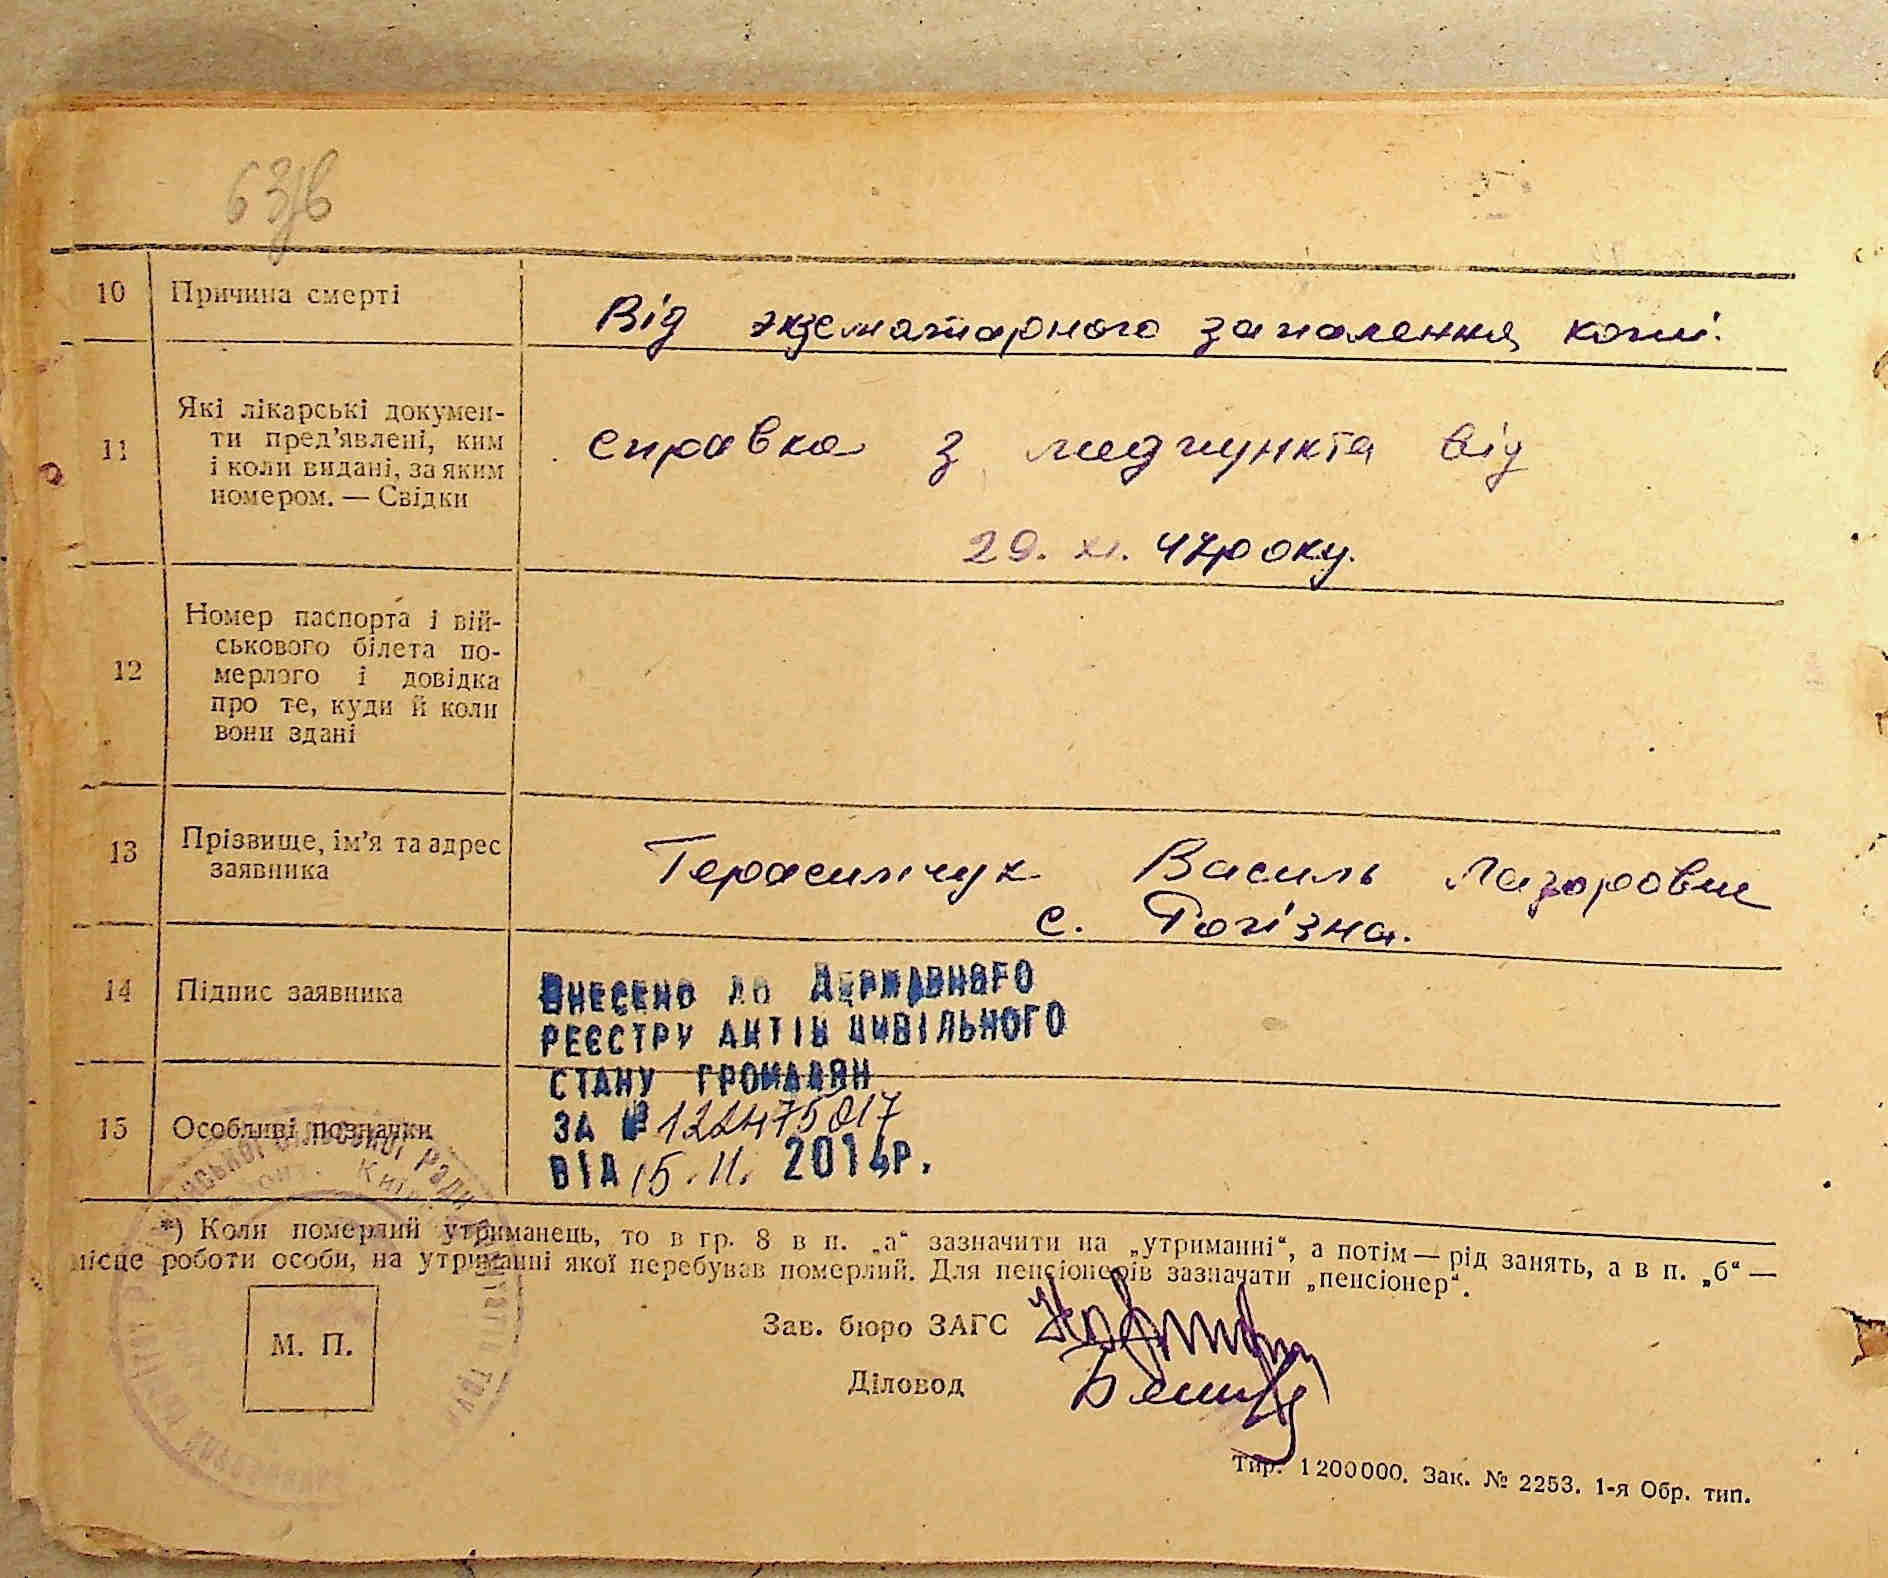 63/в
10 Причина смерті
Від экзематарного запалення кожі.
11 Які лікарські докумен-
ти пред’явлені, ким
і коли видані, за яким
номером. — Свідки
справка з медпункта від
29. XI. 47 року.
12 Номер паспорта і вій-
ськового білета по-
мерлого і довідка
про те, куди й коли
вони здані
13 Прізвище, ім’я та адрес
заявника
Герасимчук Василь Лазорович
с. Рогізна.
14 Підпис заявника
15 Особливі позначки
Внесено до Державного
реєстру актів цивільного
стану громадян
за № 122475017
від 15.11. 2014р.
*) Коли померлий утриманець, то в гр. 8 в п. „а“ зазначити на „утриманні“, а потім — рід занять, а в п. „б“ —
місце роботи особи, на утриманні якої перебував померлий. Для пенсіонерів зазначати „пенсіонер“.
М. П.
Зав. бюро ЗАГС
Діловод
Тир. 1200000. Зак. № 2253. 1-я Обр. тип.